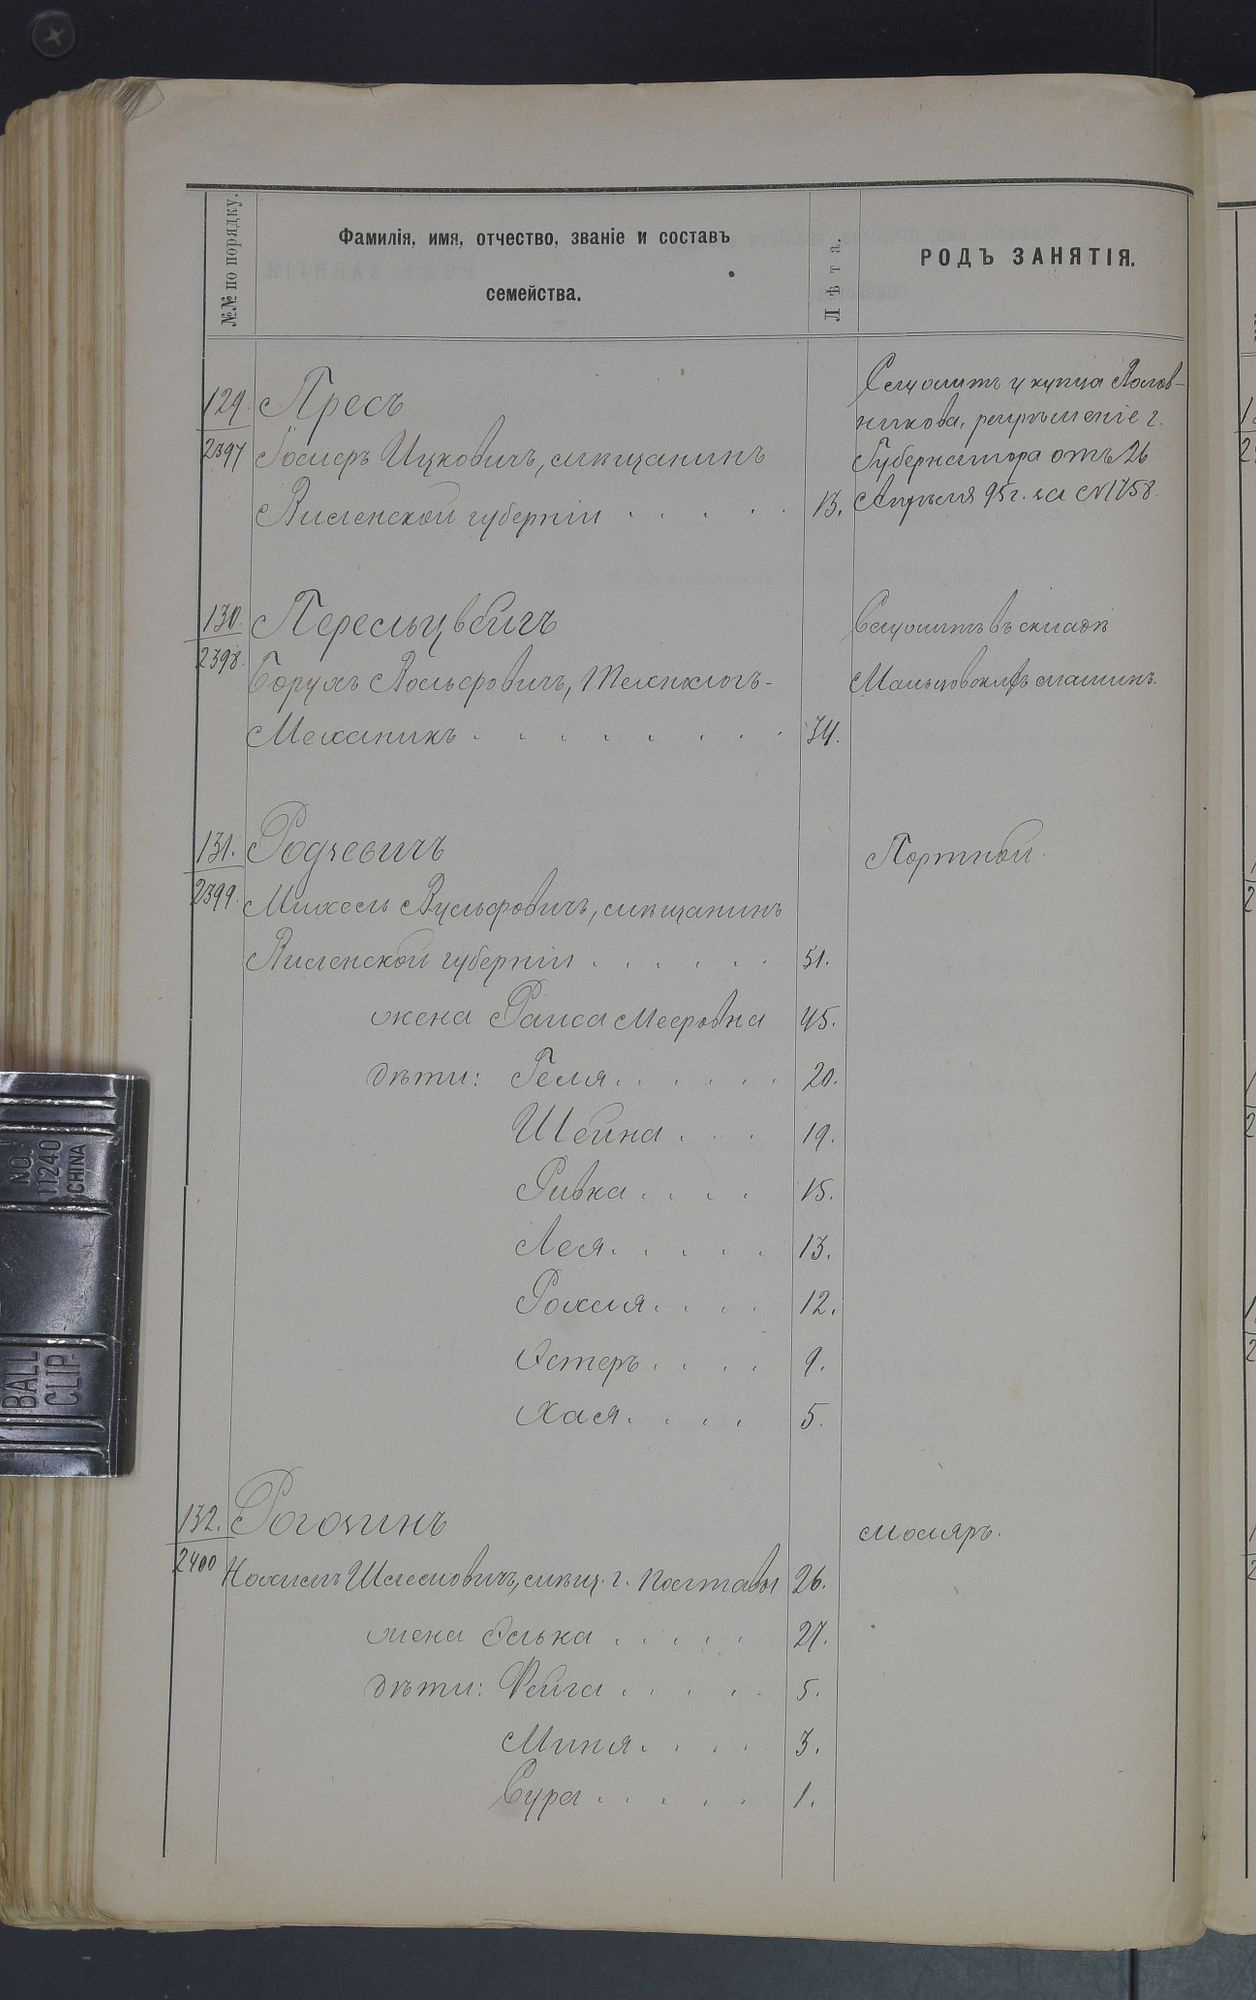 №№ по порядку.
Фамилія, имя, отчество, званіе и составъ
семейства.
Лѣта.
РОДЪ ЗАНЯТІЯ.
129. Пресъ
2397
Іосифъ Ицковичъ, мѣщанинъ
Виленской губерніи . . . . . 13.
Служитъ у купца
разрѣшеніе г.
Губернатора отъ 26
Апрѣля 95 г. за №1758.
130. Пересьцвейгъ
2398.
Борухъ Вольфовичъ, Технологъ-
Механикъ . . . . . . . . 34.
Служитъ въ складѣ
Мальцовскихъ машинъ.
131. Родзевичъ
2399.
Михель Вульфовичъ, мѣщанинъ
Виленской губерніи . . . . . . 51.
Портной.
жена Раиса Мееровна 45.
дѣти: Геля . . . . . . 20.
Шейна . . . 19.
Ривка . . . . 15.
Лея . . . . . 13.
Рохля . . . . 12.
Эстеръ . . . . 9.
Хая . . . . 5.
132. Рогозинъ
2400
мѣщ. г. Полтавы 26.
Моляръ.
жена Элька . . . . . 27.
дѣти: Фейга . . . . . 5.
Миня . . . . 3.
Сура . . . . . 1.
NO.
11240
CHINA
BALL
CLIP